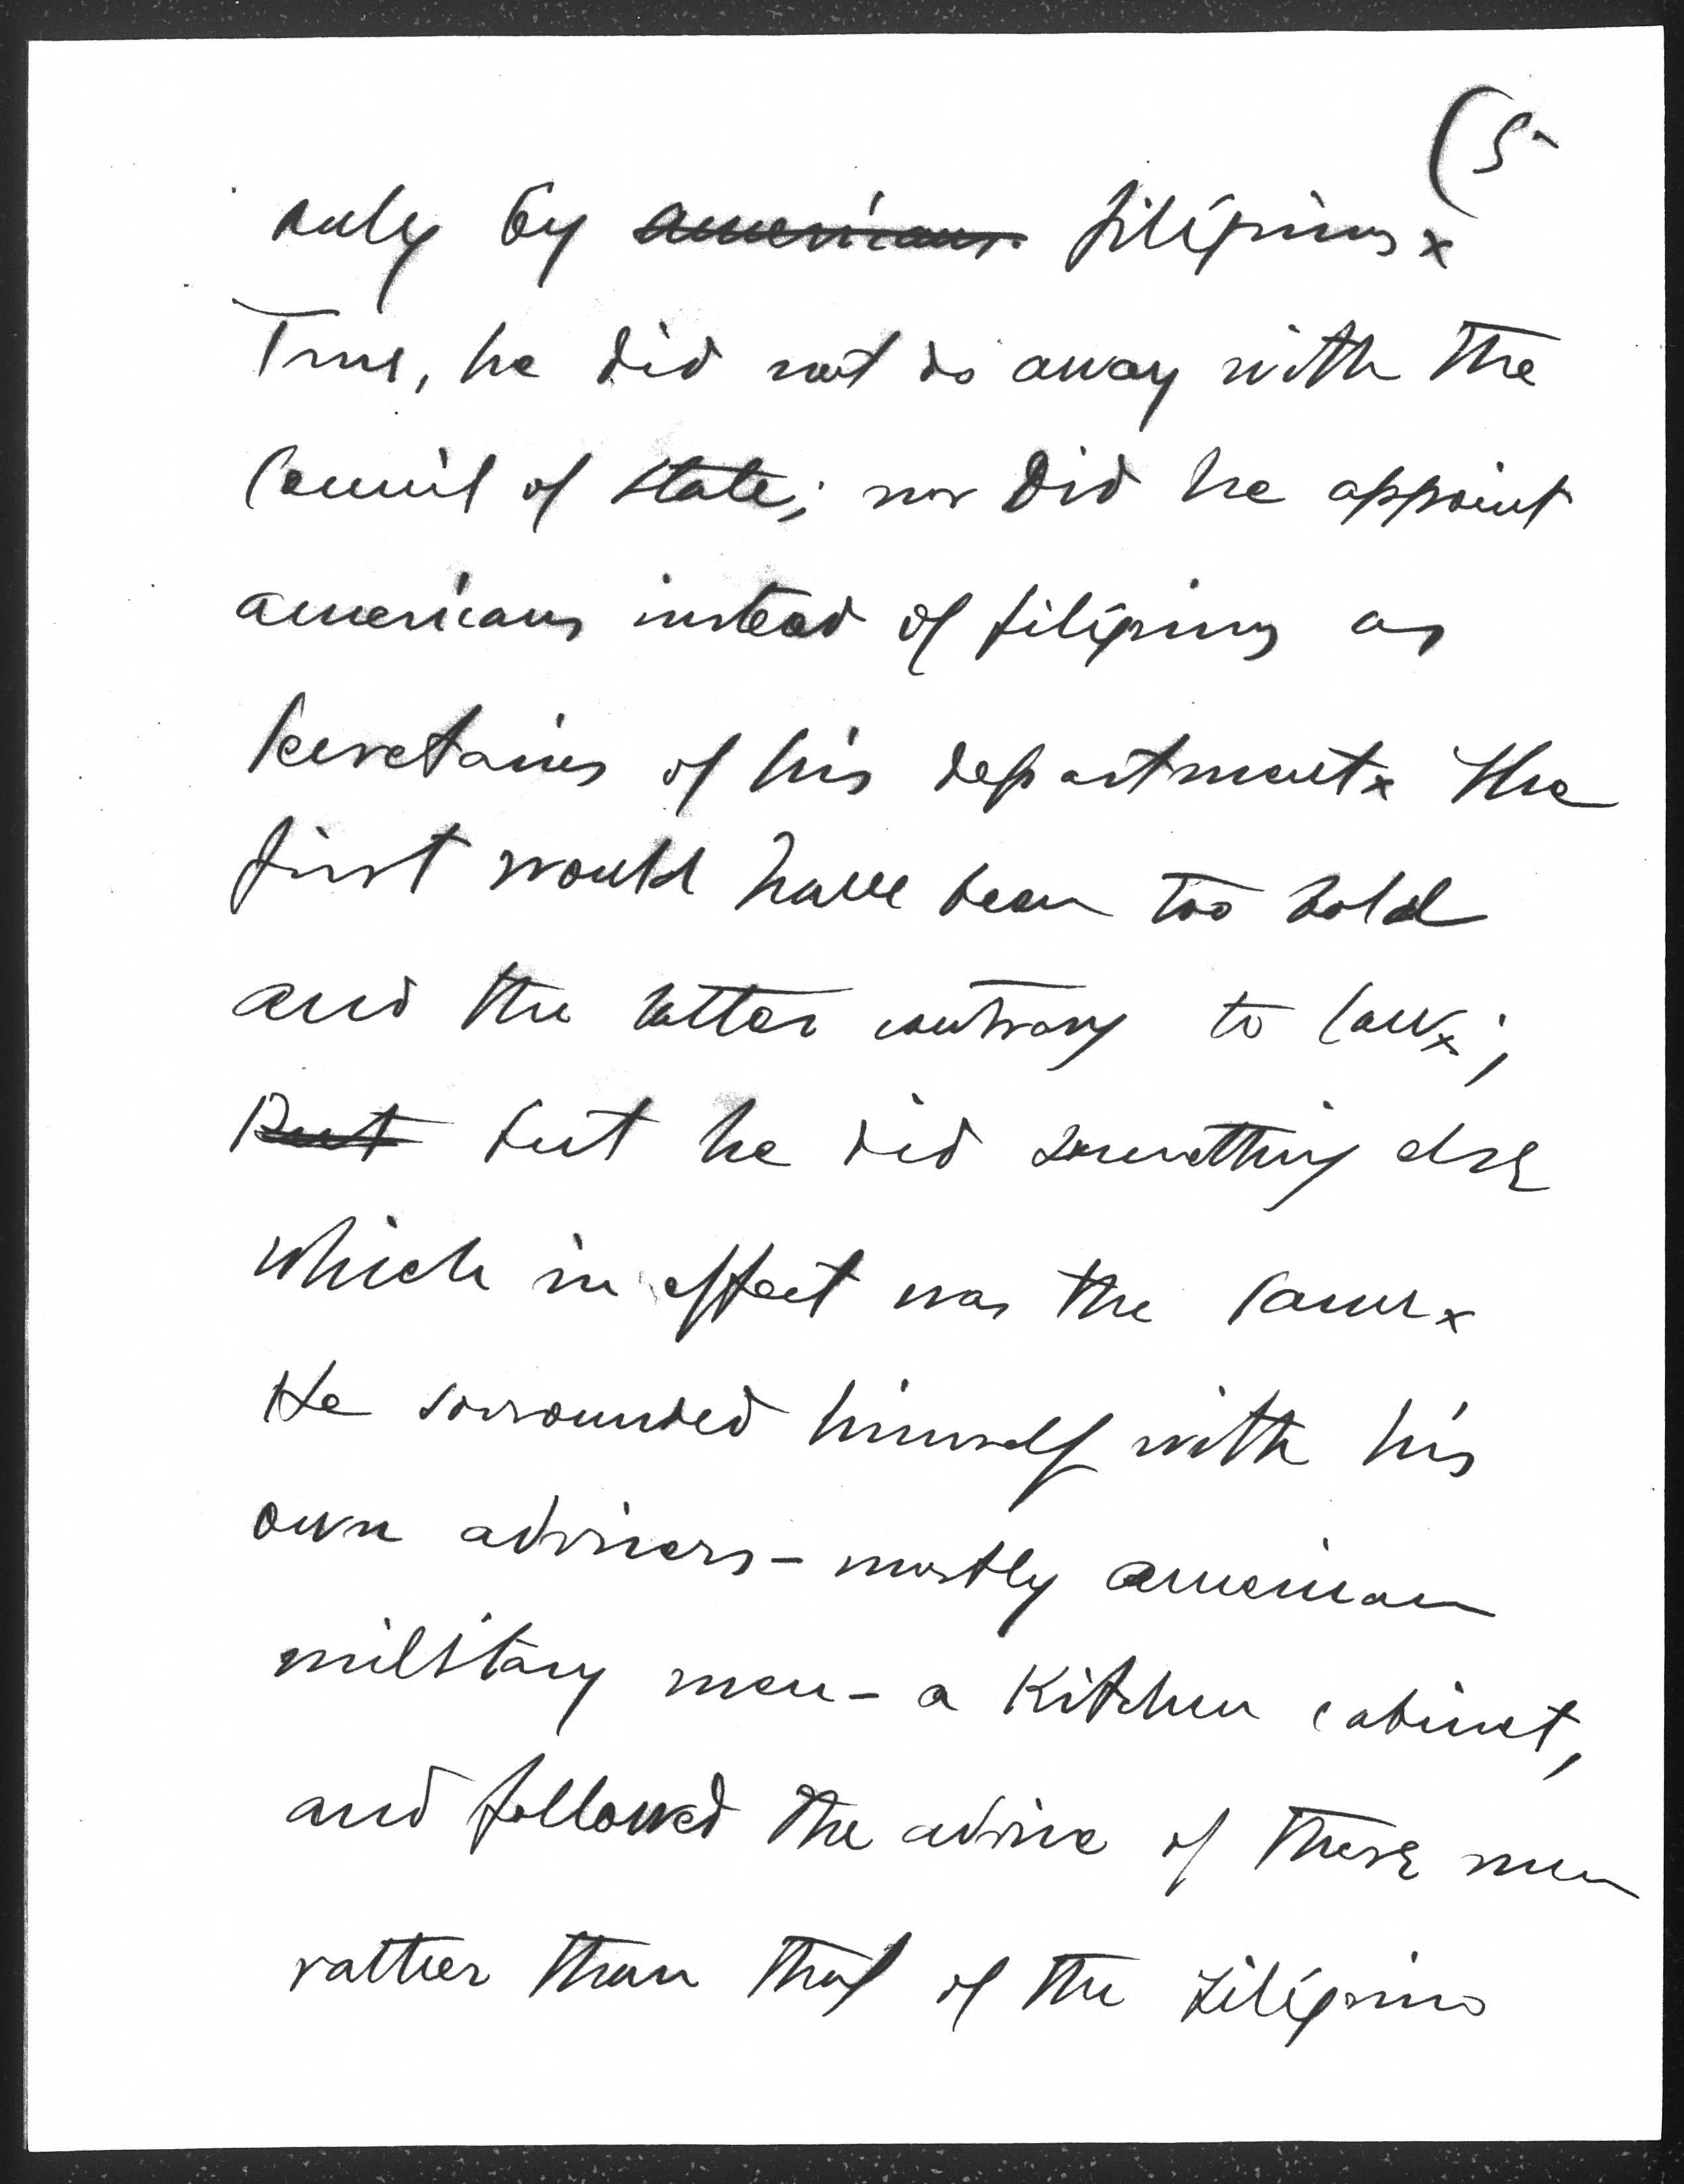 (5
only by ~~americans.~~ filipinos x
True, he did not do away with the
Council of State; nor did he appoint
americans instead of filipinos as
Secretaries of his department x The
first would have been too bold
and the latter contrary to law x;
~~But~~ but he did something else
which in effect was the same x
He sorrounded himself with his
own advisers – mostly american
military men – a Kitchen cabinet,
and followed the advice of these men
rather than that of the filipino